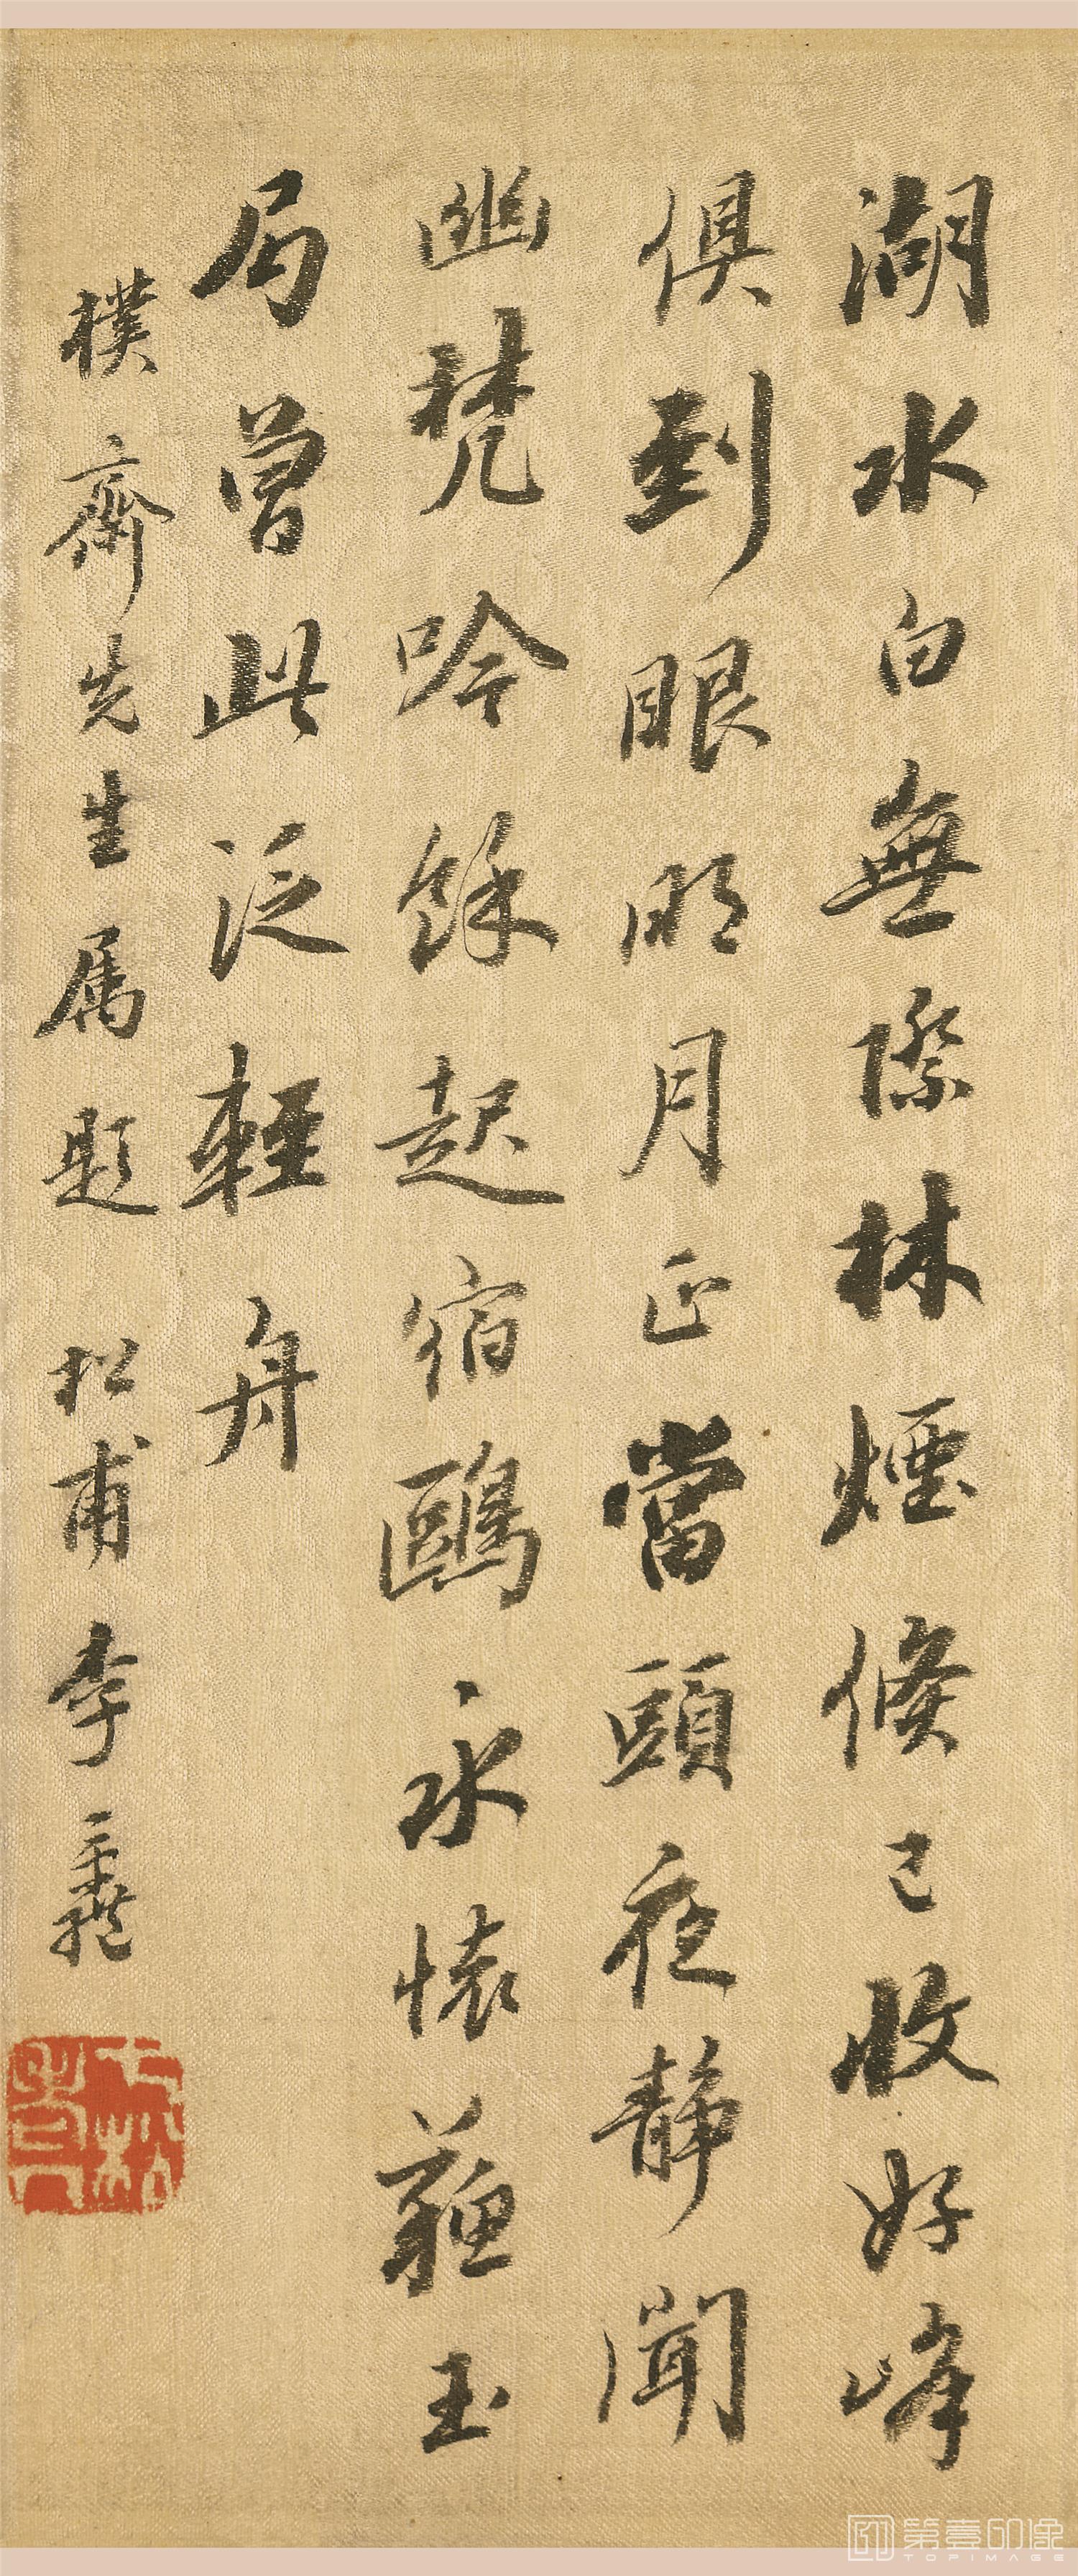 湖水白無際林煙倏已收好峰
俱到眼明月正當頭夜靜聞
幽梵吟餘起宿鷗永懷蘓玉
局曾此泛輕舟
樸齋先生属題 松甫李
第壹印像
TOPIMAGE